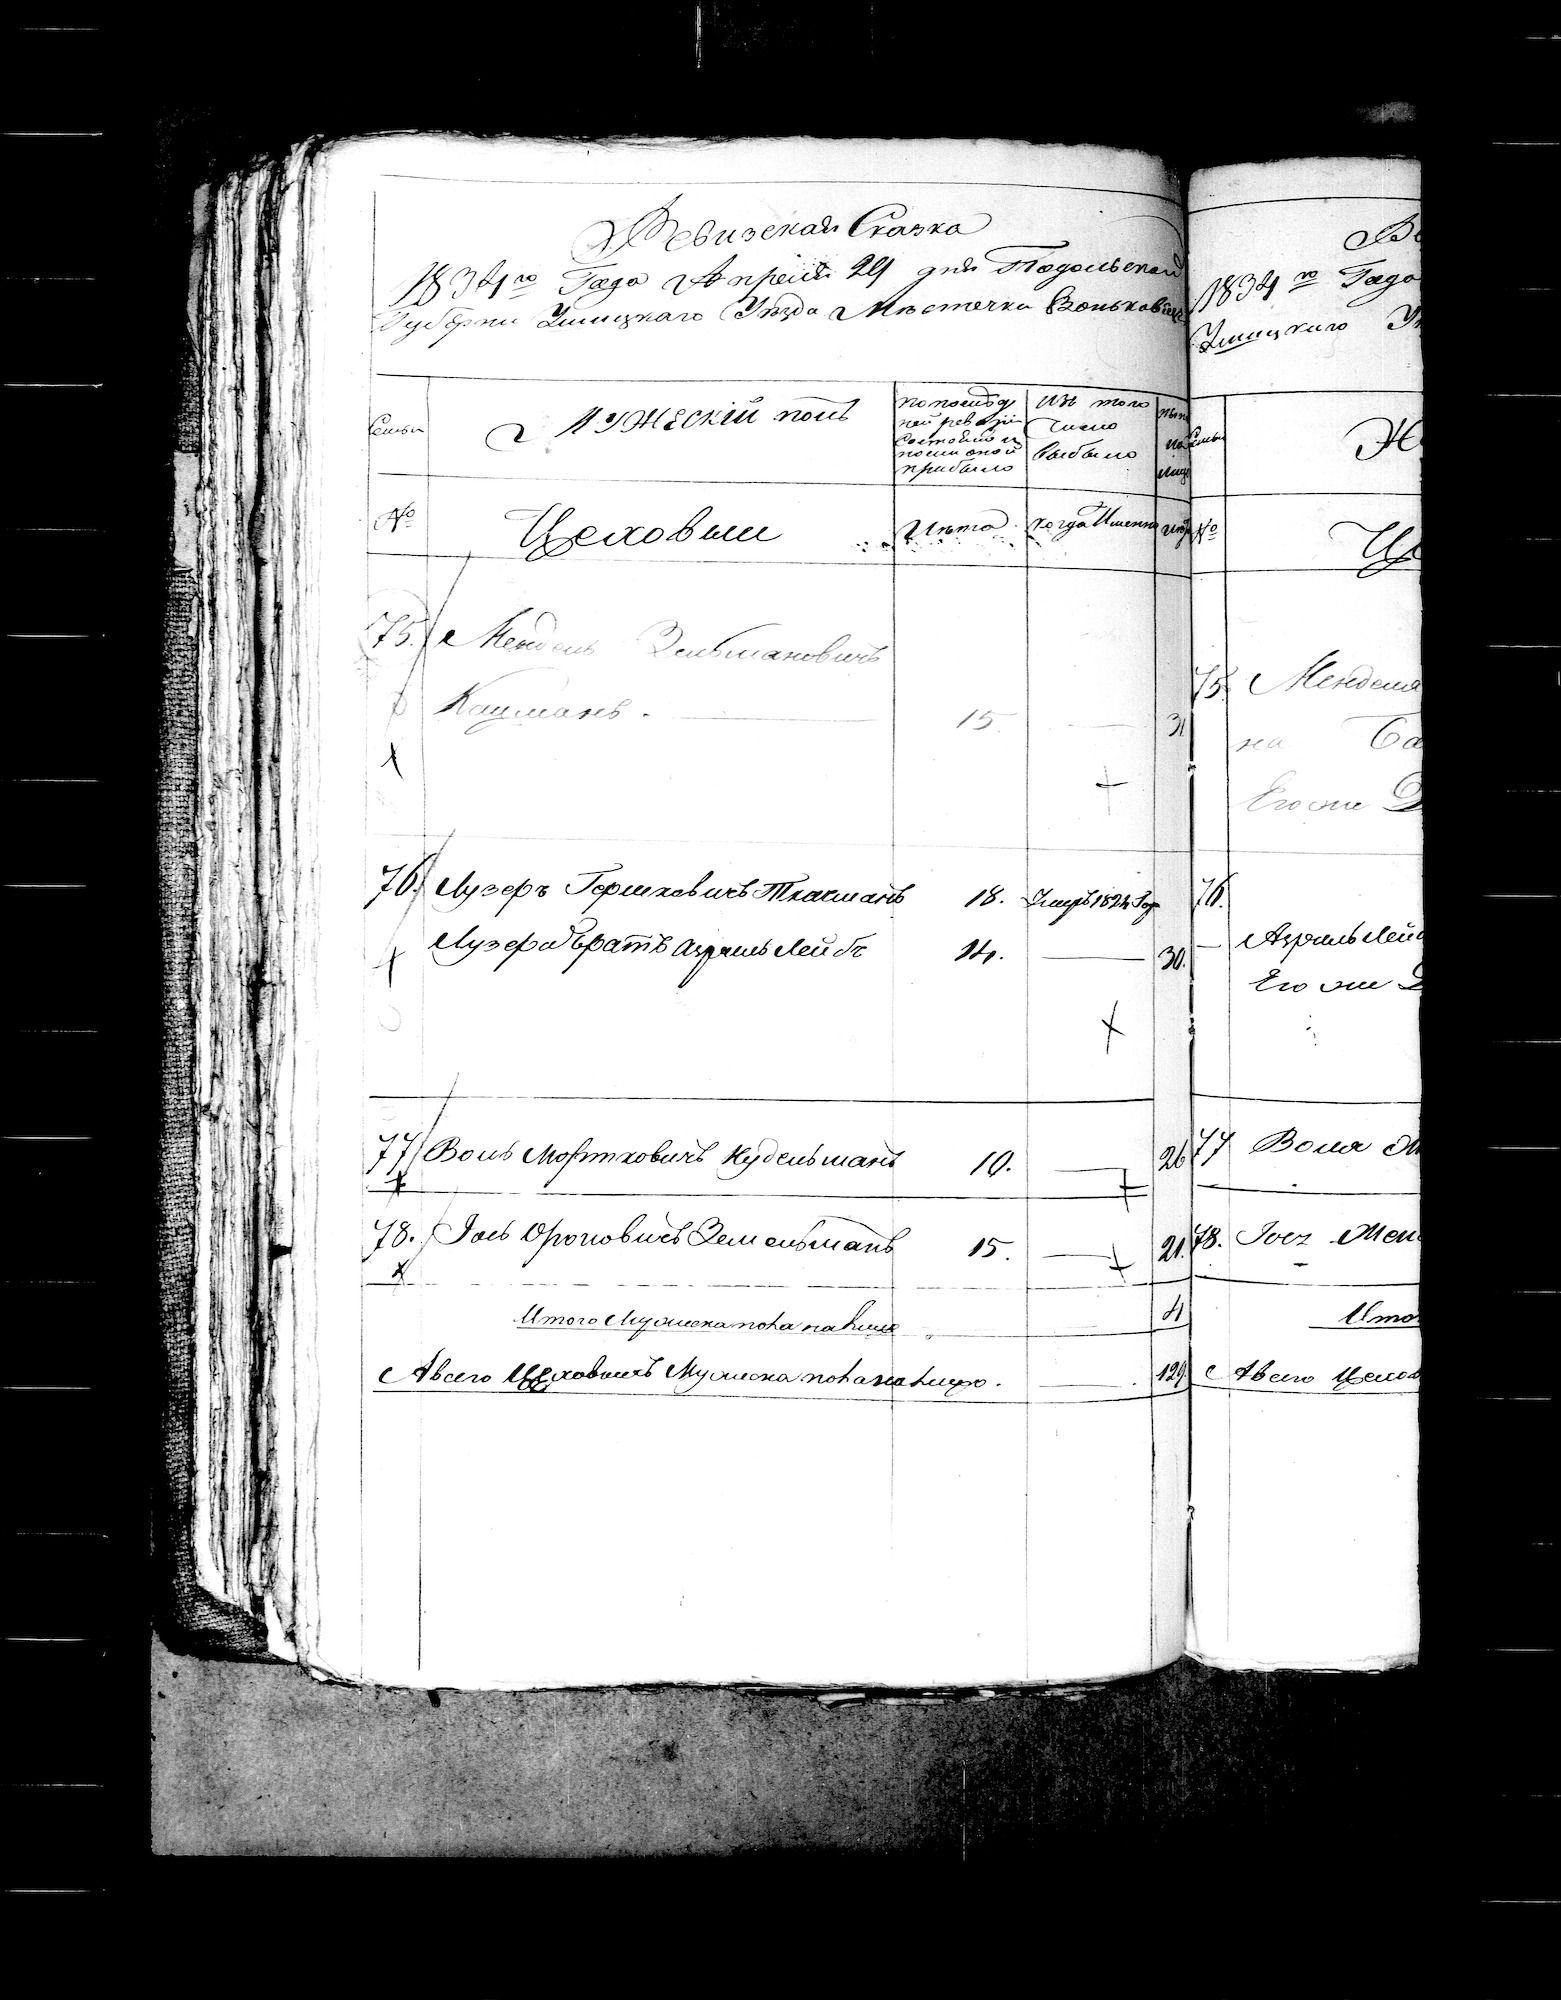 Ревизская Сказка
1834го Года Апреля 24 дня Подольской
Губернии Ушицкаго Уезда Местечка Воньковиц
Семьи
Мужескій полъ
по послед
ней ревизіи
состояло и
после оной
прибыло
Изъ того
числа
выбыло
ныне
на
лице
№
Цеховыи
Лета
когда Именно
лета
75. Мендель Зельмановичъ
Кацманъ. 15 31
76. Лузеръ Гершковичъ Ткачманъ 18. Умеръ 1824 Год
Лузера братъ Азриль Лейбъ 14. 30.
77 Воль Мортковичъ Нудельманъ 10. 26
78. Іось Ороновичъ Земельманъ 15. 21.
Итого Мужеска пола на лице 4
А всего Цеховыхъ Мужеска пола на лицо. 129
1834го Года
Ушицкаго
Семьи
№
75. Менделя
на
Его же
76.
Азриль Лей
Его же
77 Воля
78. Іося
Ито
А всего Цехов